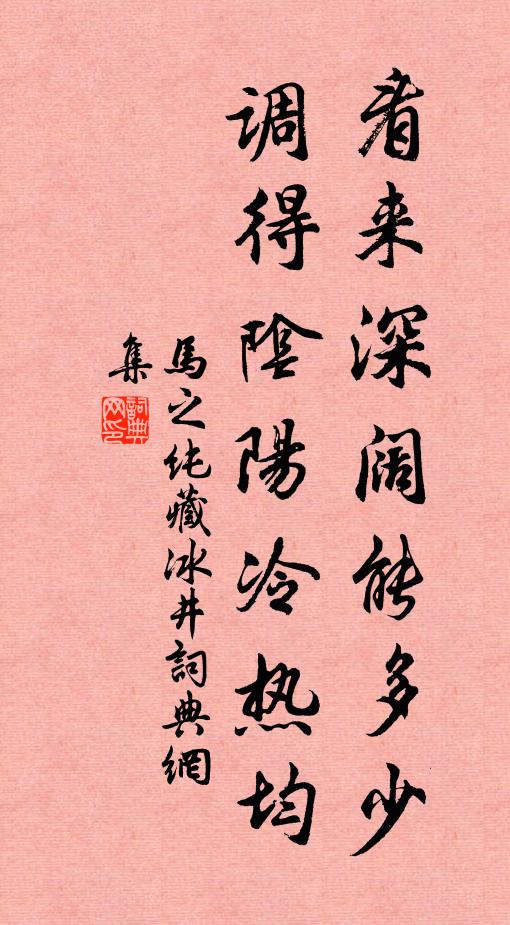 看来深阔能多少
调得陰陽冷热均
馬之纯藏冰井詞典網
集
詞典
网印